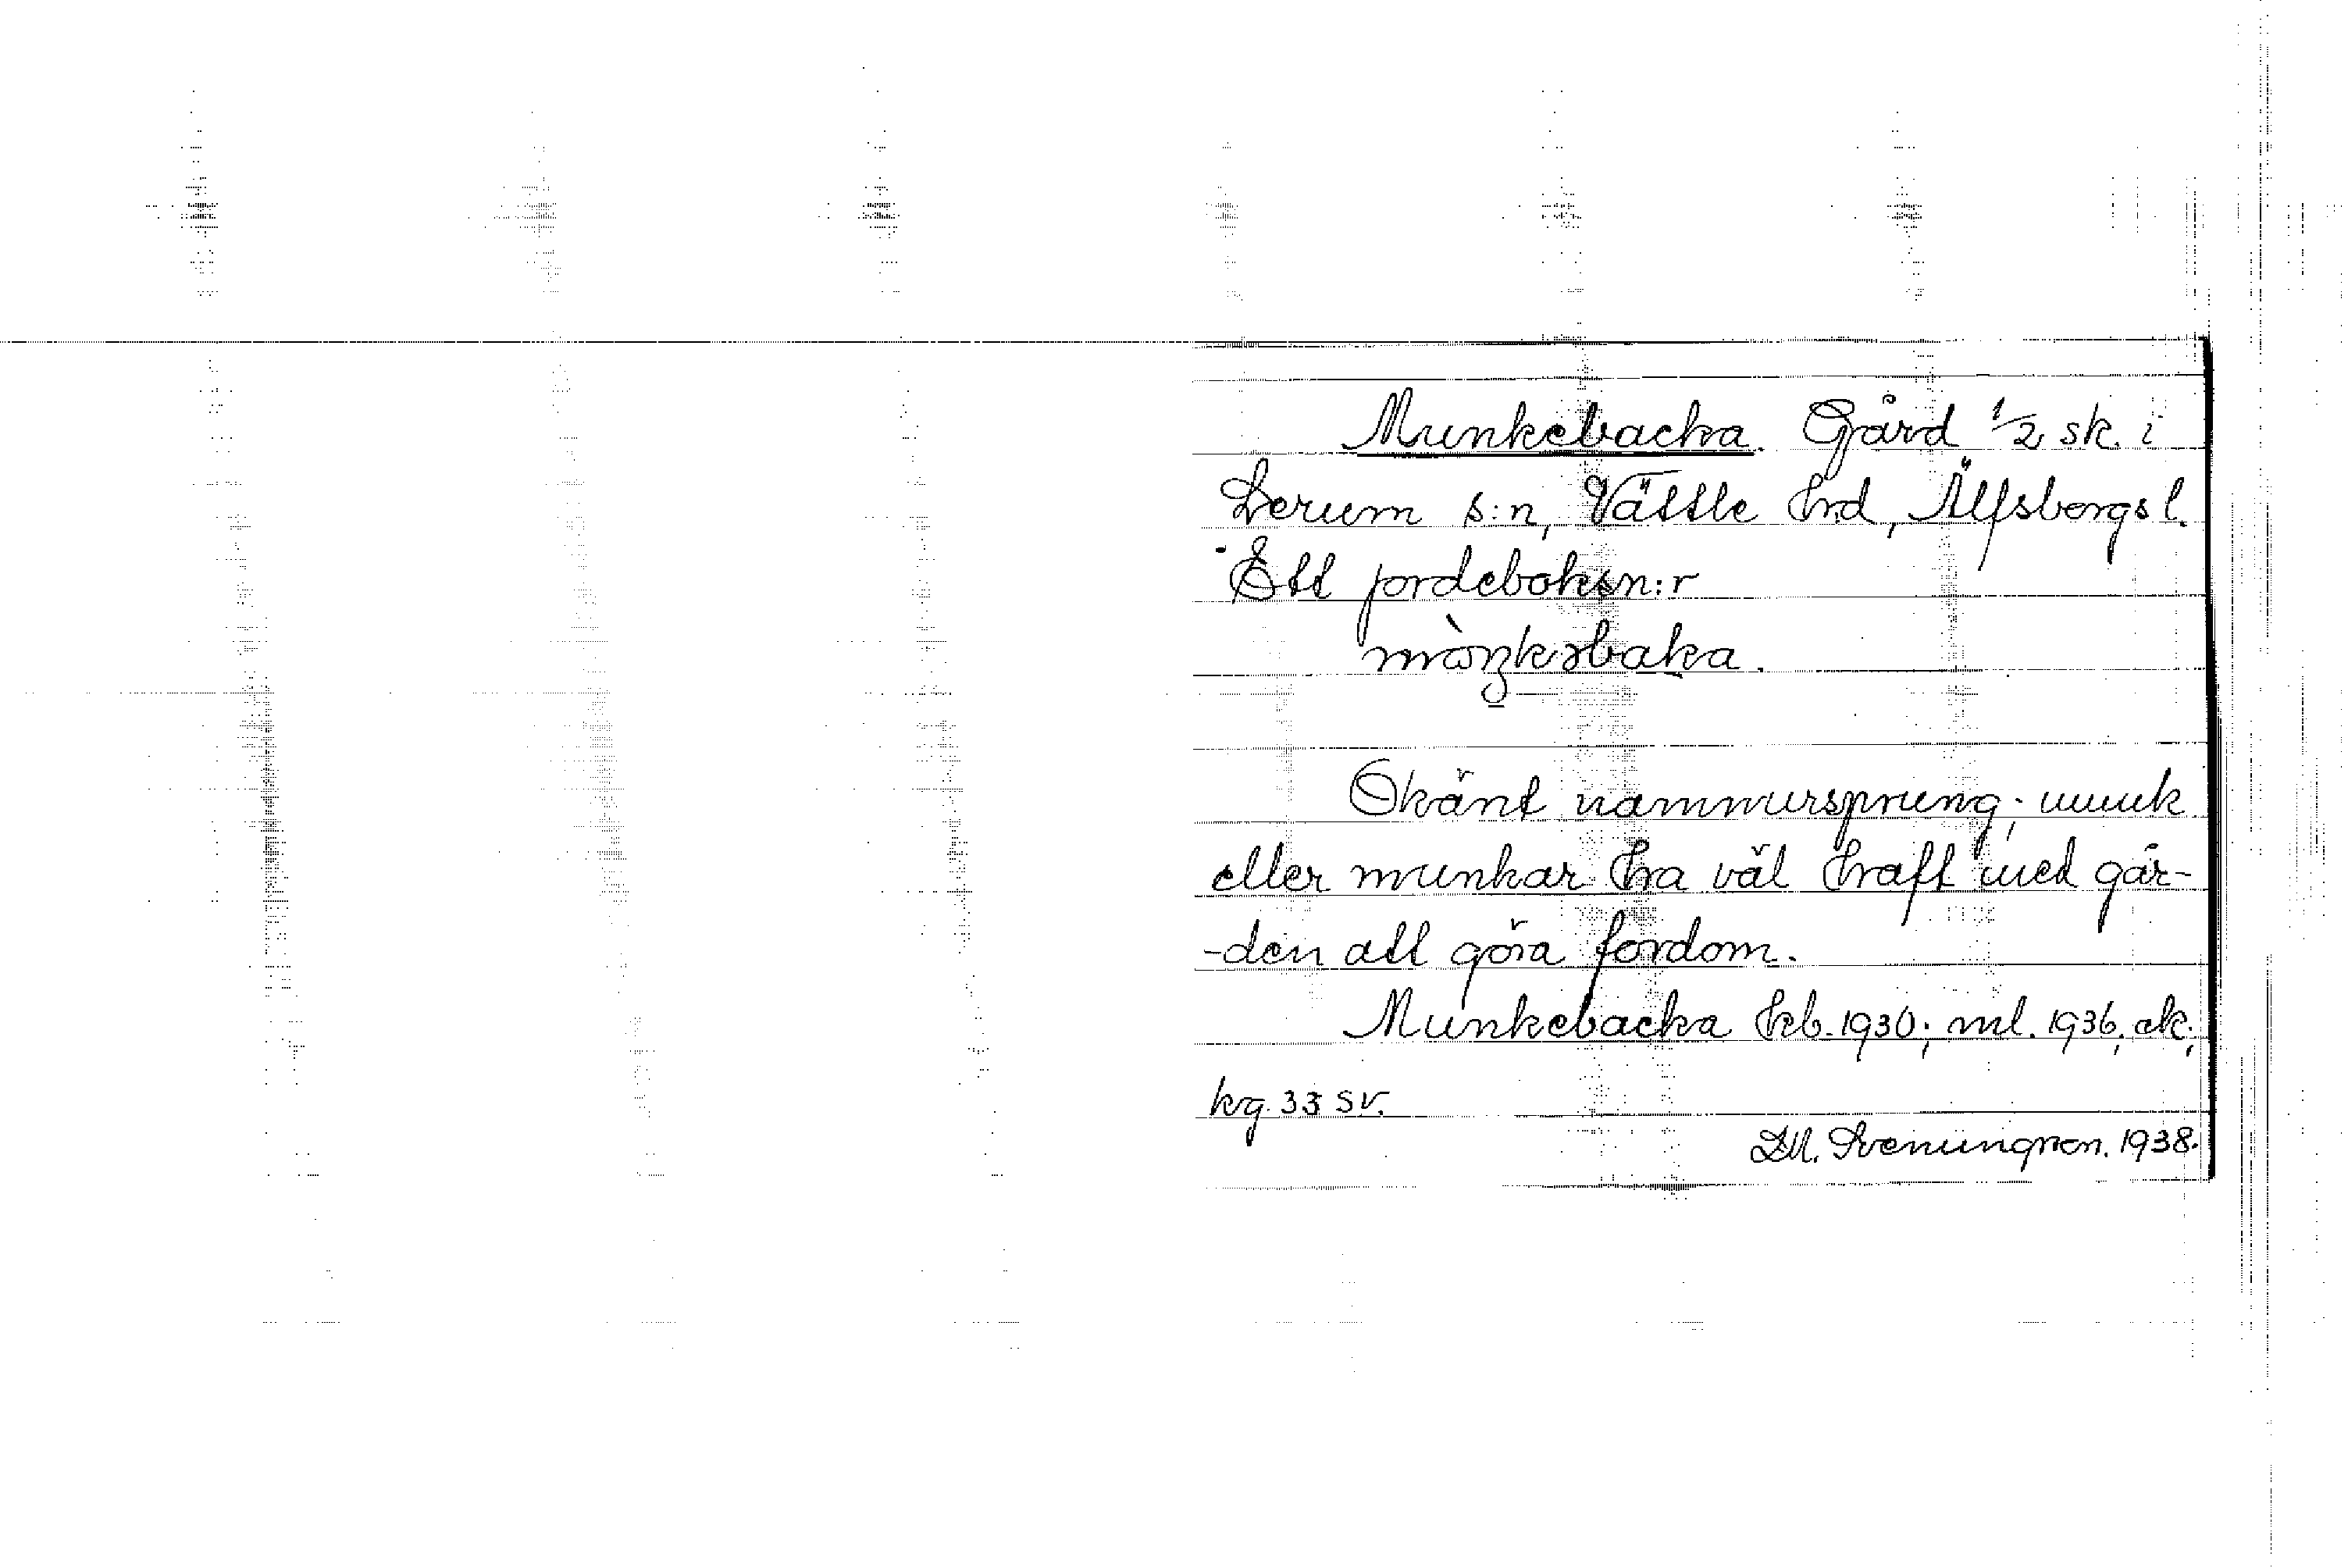 Munkebacka. Gård 1/2 sk. i
Lerum s:n, Vättle hrd, Älfsborgs l.
Ett jordeboksn:r
mòŋkəbaka.
Okänt namnursprung; munk
eller munkar ha väl haft med går-
-den att göra fordom.
Munkebacka hb. 1930; ml. 1936, ek;
kg 33 sv.
Svenungson. 1938.